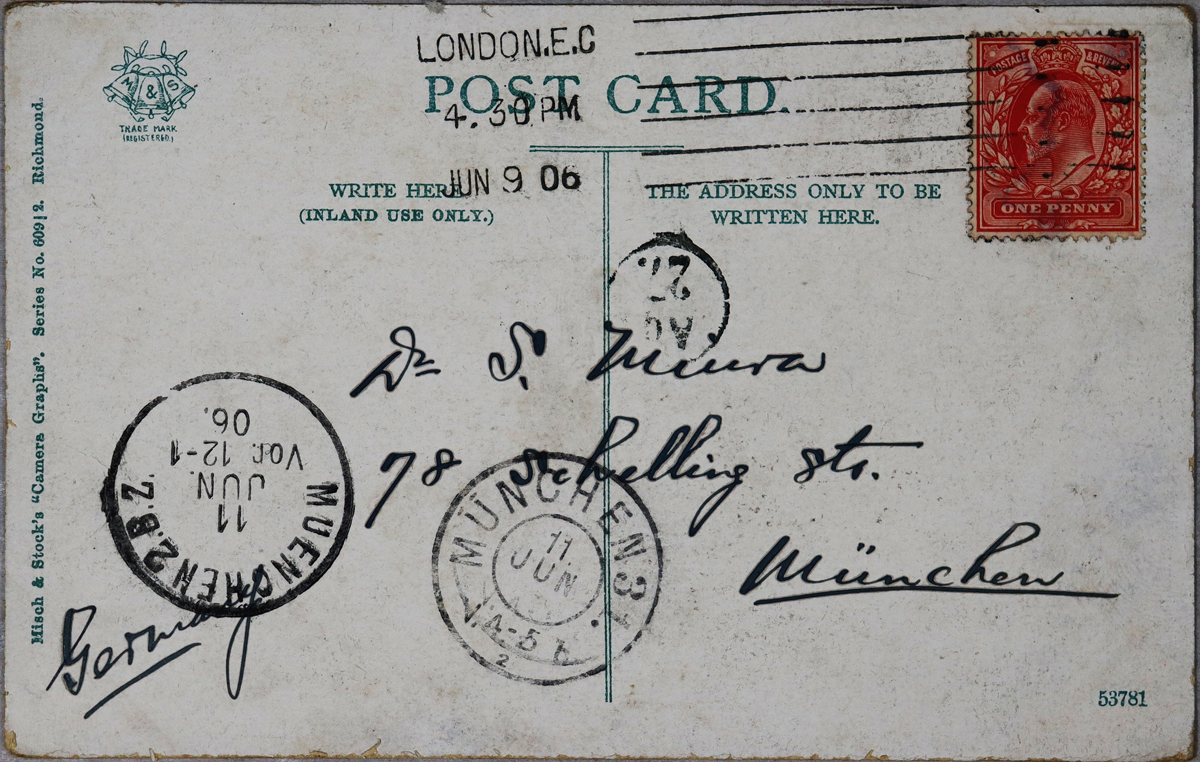 LONDON.E.C
4.30PM
JUN 9 06
POST CARD.
M & S
TRADE MARK
(REGISTERED.)
POSTAGE & REVENUE
ONE PENNY
WRITE HERE
(INLAND USE ONLY.)
THE ADDRESS ONLY TO BE
WRITTEN HERE.
Misch & Stock's "Camera Graphs". Series No. 609|2. Richmond.
27.
Dr S. Miura
78 Schelling str.
München
Germany
MUENCHEN 2.B.Z.
11
JUN.
Vor. 12-1
06.
MÜNCHEN 31
11
JUN
V.4-5
2
53781